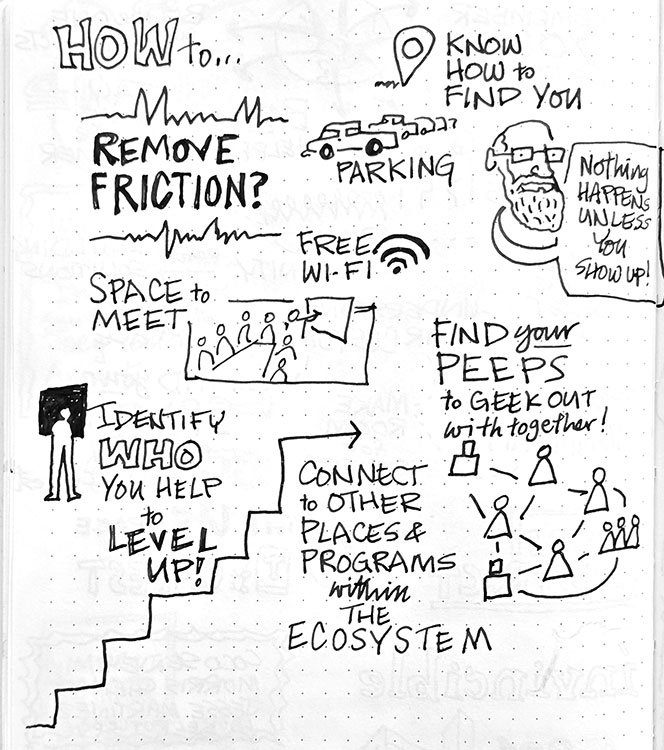 HOW to...
REMOVE
FRICTION?
KNOW
HOW to
FIND YOU
PARKING
Nothing
HAPPENS
UNLESS
YOU
SHOW UP!
FREE
WI-FI
SPACE to
MEET
FIND your
PEEPS
to GEEK OUT
with together!
IDENTIFY
WHO
YOU HELP
to
LEVEL
UP!
CONNECT
to OTHER
PLACES &
PROGRAMS
within
THE
ECOSYSTEM
invincible